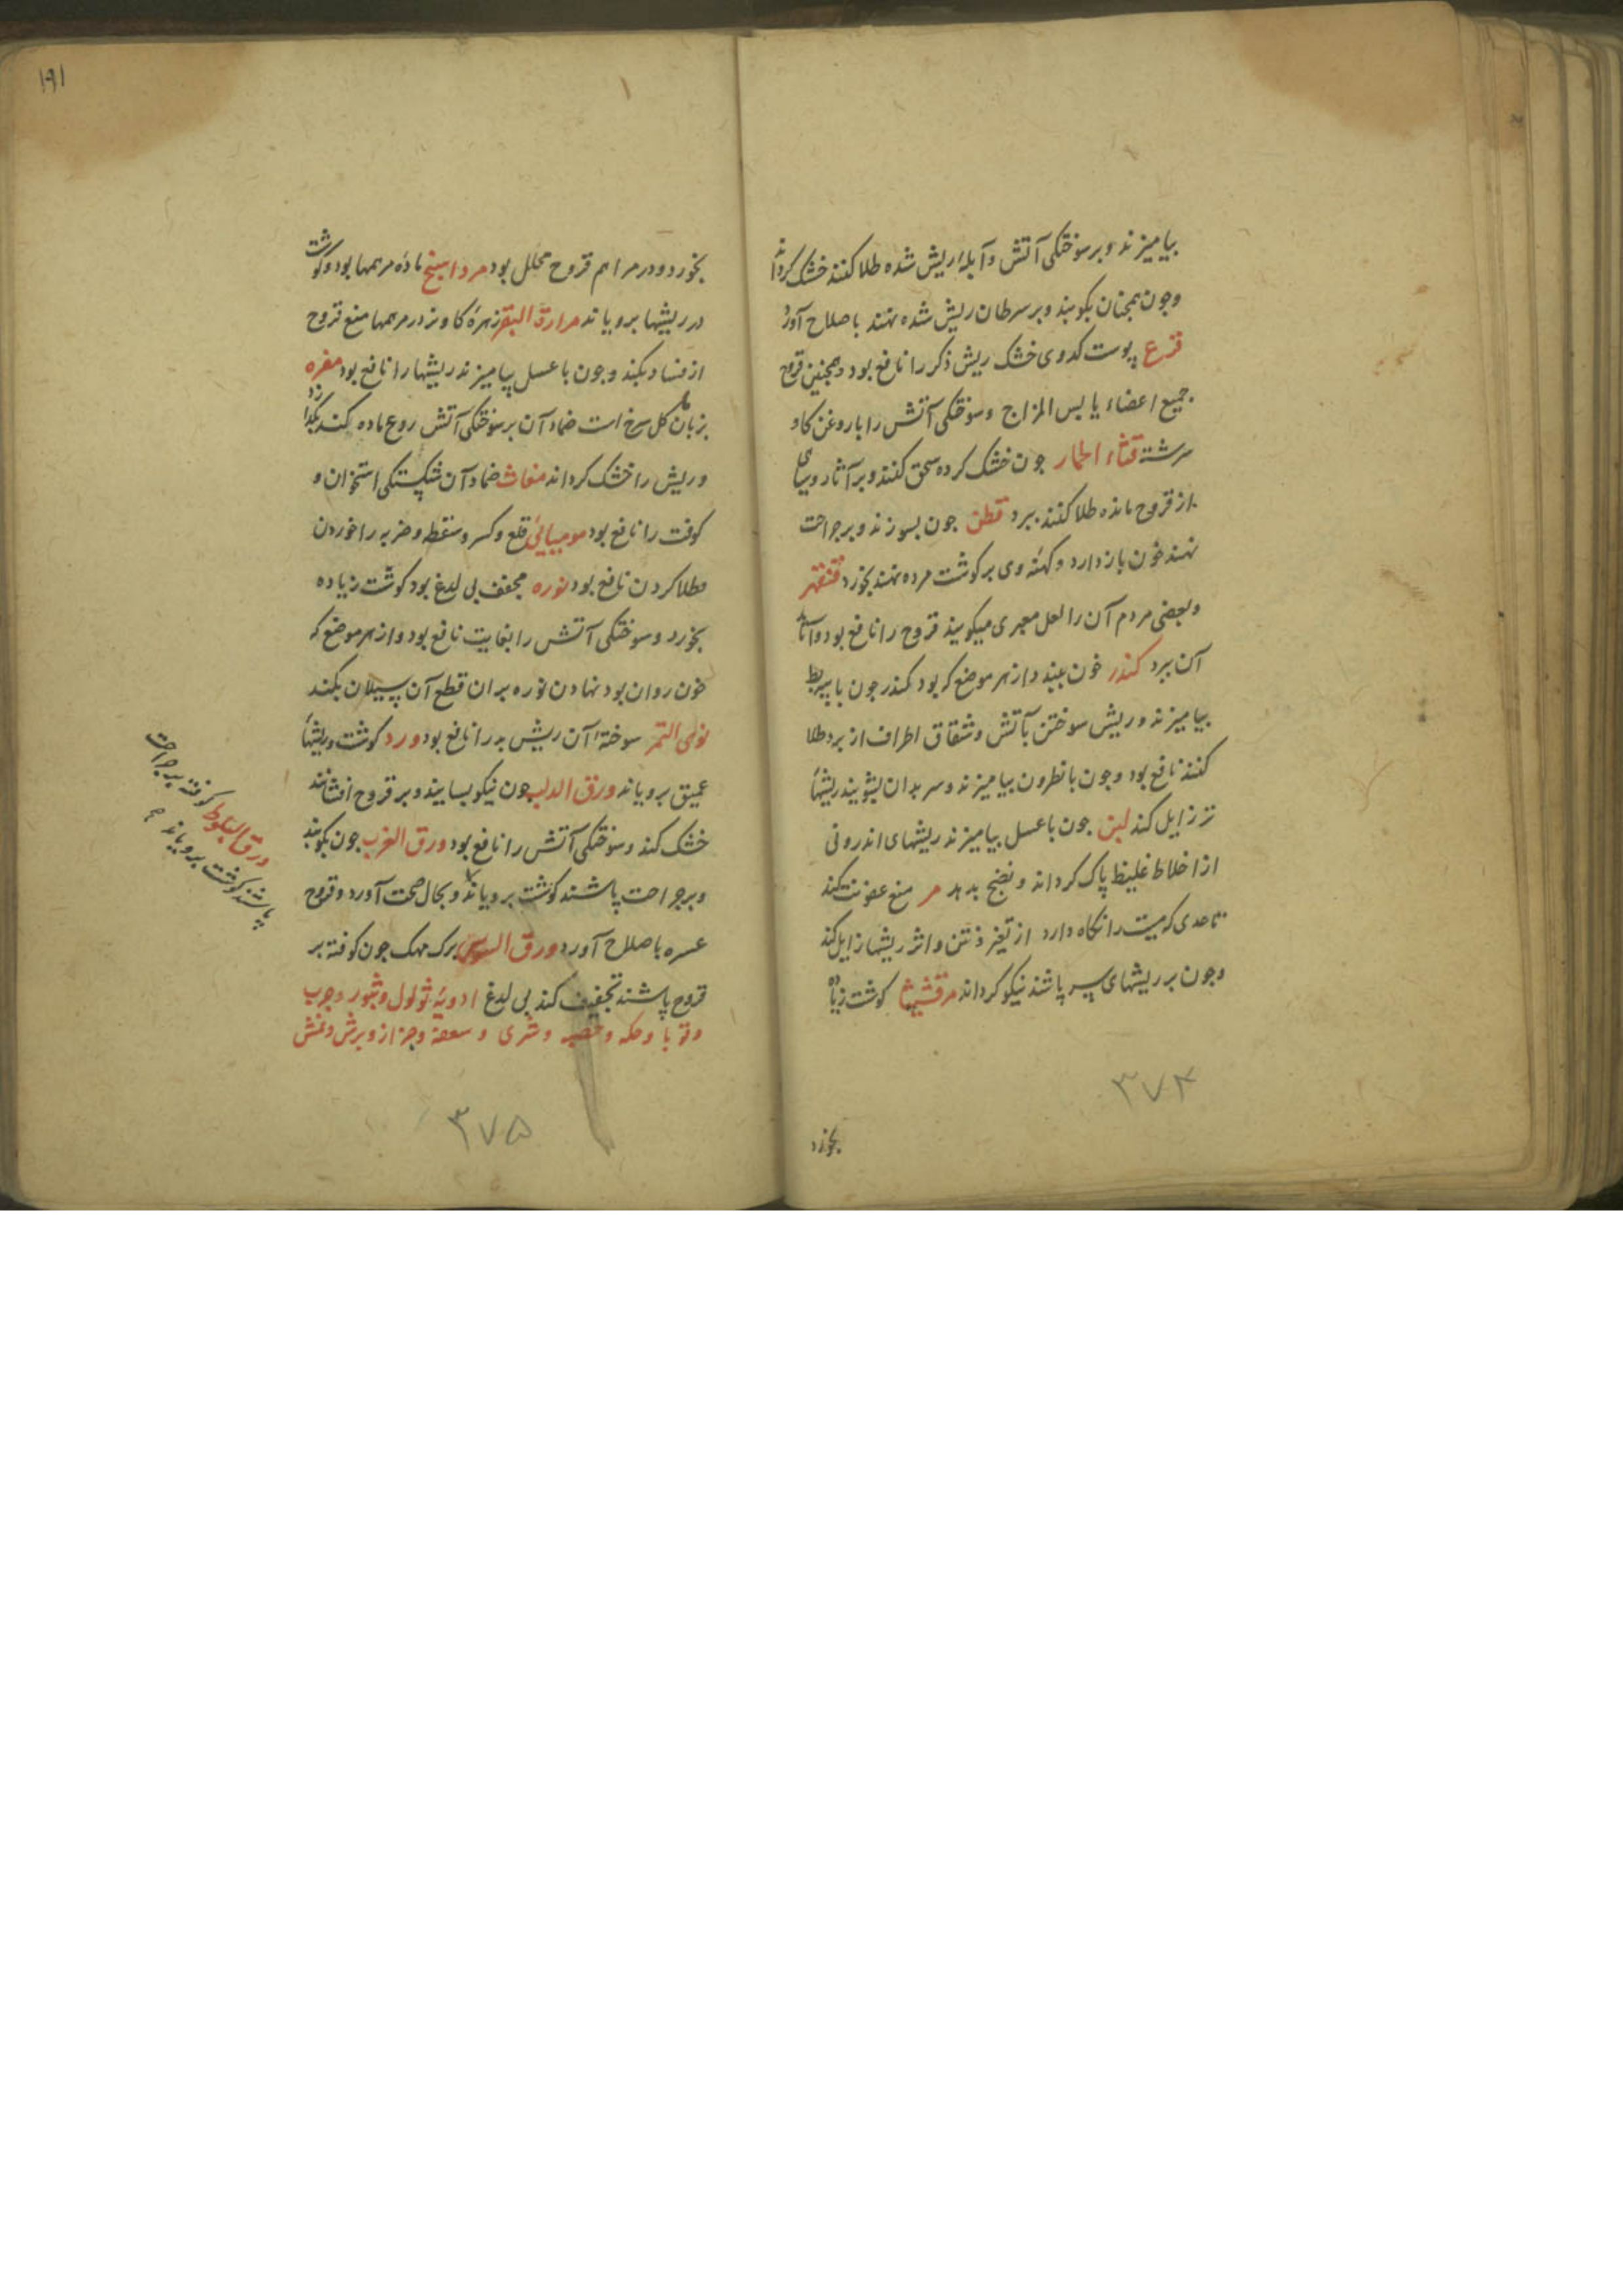 بیامیزند و بر سوختگی آتش و آبله ریش شده طلا کنند خشک کرداند
و جون همجنان بکوبند و بر سرطان ریش شده نهند باصلاح آورد
قرع پوست کدوی خشک ریش ذکر را نافع بود و همجنین قروح
جمیع اعضاء یابس المزاج و سوختگی آتش را با روغن کاو
سرشته قثاء الحمار جون خشک کرده سحق کنند و بر آثار وسیاهی
از قروح مانده طلا کنند ببرد قطن جون بسوزند و بر جراحت
نهند خون باز دارد و کهنه وی بر کوشت مرده نهند بخورد قنقهر
و بعضی مردم آن را لعل معجری میکویند قروح را نافع بود و آثار
آن ببرد کندر خون ببندد از هر موضع که بود کندر جون با پیه بط
بیامیزند و ریش سوختن بآتش و شقاق اطراف از برد طلا
کنند نافع بود و جون با نطرون بیامیزند و سر بدان بشویند ریشهاء
تر زایل کند لبن جون با عسل بیامیزند ریشهای اندرونی
از اخلاط غلیظ پاک کرداند و نضج بدهد مر منع عفونت کند
تا حدی که میت را نکاه دارد از تغیر و نتن و اثر ریشها زایل کند
و جون بر ریشهای سر پاشند نیکو کرداند مرقشیثا کوشت زیاده
۳۷۴
بخورد
۱۹۱
بخورد و در مراهم قروح محلل بود مرداسنج ماده مرهمها بود و کوشت
در ریشها برویاند مرارة البقر زهره کاو نر در مرهمها منع قروح
از فساد بکند و جون با عسل بیامیزند ریشها را نافع بود مغره
بزبان کل سرخ است ضماد آن بر سوختگی آتش روع ماده کند بکذارد
و ریش را خشک کرداند مغاث ضماد آن شکستگی استخوان و
کوفت را نافع بود مومیائی قلع و کسر و سقطه و ضربه را خوردن
و طلا کردن نافع بود نوره مجفف بی لدغ بود کوشت زیاده
بخورد و سوختگی آتش را بغایت نافع بود و از هر موضع که
خون روان بود نهادن نوره بران قطع آن سیلان بکند
نوی التمر سوخته آن ریش بد را نافع بود ورد کوشت ریشهاء
عمیق برویاند ورق الدلب جون نیکو بسایند و بر قروح افشانند
خشک کند و سوختگی آتش را نافع بود ورق الغرب جون بکوبند
و بر جراحت پاشند کوشت برویاند و بحال صحت آورد و قروح
عسره باصلاح آورد ورق السوس برک مهک جون کوفته بر
قروح پاشند تجفیف کند بی لدغ ادویه ثولول و بثور و جرب
و قوبا و حکه و حصبه و شری و سعفه و حزاز و برش و نمش
ورق البلوط کوفته بر جراحت
پاشند کوشت برویاند
۳۷۵